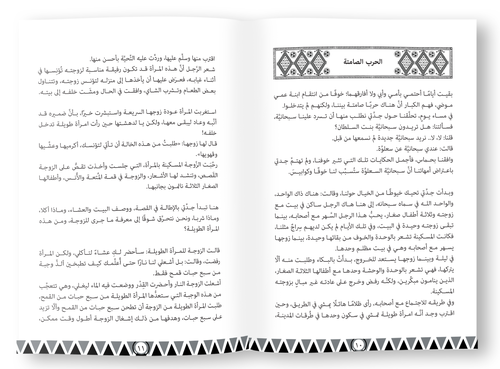 الحرب الصامتة
بقيت أيامًا أحتمي بأمي وأبي ولا أفارقهما؛ خوفًا من انتقام ابنة عمي
موضي، فهم الكبار أنَّ هناك حربًا صامتة بيننا، ولكنهم لم يتدخلوا.
في مساء يوم، تحلَّقنا حول جدتي نطلب منها أن تسرد علينا سبحانيَّة،
فسألتنا: هل تريدون سبحانيَّة بنت السلطان؟
قلنا: لا، لا.. نريد سبحانيَّة جديدة لم نسمعها من قبل.
قالت: عندي سبحانيَّة عن سعلوَّة.
وافقنا بحماس، فأجمل الحكايات تلك التي تثير خوفنا، ولم تهتمَّ جدتي
باعتراض أمهاتنا أنَّ سبحانيَّة السعلوَّة ستُسبِّب لنا خوفًا وكوابيس.
وبدأت جدَّتي تحيك خيوطًا من الخيال حولنا، وقالت: هناك ذاك الواحد،
والواحد الله في سماه سبحانه، إلى هنا هاك الرجل ساكن في بيت مع
زوجته وثلاثة أطفال صغار، يحبُّ هذا الرجل السَّهر مع أصحابه، بينما
تبقى زوجته وحيدة في البيت، وفي تلك الأيام لم يكن لديهم براعٌ مثلنا،
فكانت المسكينة تشعر بالوحدة والخوف من بقائها وحيدة، بينما زوجها
يسهر مع أصحابه وهي في بيت مظلم وحدها.
في ليلة وبينما زوجها يستعد للخروج، بدأت بالبكاء وطلبت منه ألَّا
يتركها، فهي تشعر بالوحدة والوحشة وحدها مع أطفالها الثلاثة الصغار،
الذين ينامون مبكِّرين، ولكنَّه رفض وخرج على عادته غير مبالٍ بزوجته
المسكينة.
وفي طريقه للاجتماع مع أصحابه، رأى ظلًّا هائلًا يمشي في الطريق، وحين
اقترب وجد أنَّه امرأة طويلة تمشي في سكون وحدها في طرقات المدينة،
١٠
اقترب منها وسلَّم عليها، وردَّت عليه التَّحيَّة بأحسن منها.
شعر الرَّجل أنَّ هذه المرأة قد تكون رفيقة مناسبة لزوجته تُؤنسها في
أثناء غيابه، فعرَض عليها أن يأخذها إلى منزله لتُؤنس زوجته، وتتناول
بعض الطعام وتشرب الشاي، وافقت في الحال ومشَت خلفه إلى بيته.
استغربت المرأة عودة زوجها السريعة واستبشرت خيرًا، بأنَّ ضميره قد
أنَّبه وعاد ليبقى معها، ولكن يا لدهشتها حين رأت امرأة طويلة تدخل
خلفه!
قال لها زوجها: «طلبتُ من هذه الخالة أن تأتي لتُؤنسك، أكرميها وعشِّيها
وقهويها».
رحَّبت الزَّوجة المسكينة بالمرأة، التي جلست وأخذت تقصُّ على الزوجة
القصص، وتنشد لها الأشعار، والزوجة في قمة المُتعة والأُنس، وأطفالها
الصغار الثلاثة نائمون بجانبها.
هنا تبدأ جدتي بالإطالة في القصة، ووصف البيت والعشاء، وماذا أكلا،
وماذا شربا، ونحن نتحرَّق شوقًا إلى معرفة ما جرى للزوجة، ومن هذه
المرأة الطويلة!
قالت الزوجة للمرأة الطويلة: سأحضر لكِ عشاءً لتأكلي، ولكنَّ المرأة
رفضت، وقالت: بل أشعلي لنا نارًا حتى أُعلِّمك كيف تطبخين ألذَّ وجبة
من سبع حبات قمح فقط.
أشعلت الزوجة النار وأحضرت القدْر ووضعت فيه الماء ليغلي، وهي تتعجَّب
من هذه الوجبة التي ستُعدُّها المرأة الطويلة من سبع حبات من القمح،
طلبت المرأة الطويلة من الزوجة أن تطحن سبع حبات من القمح وألَّا تزيد
على سبع حبات، وهدفها من ذلك إشغال الزوجة أطول وقت ممكن،
١١